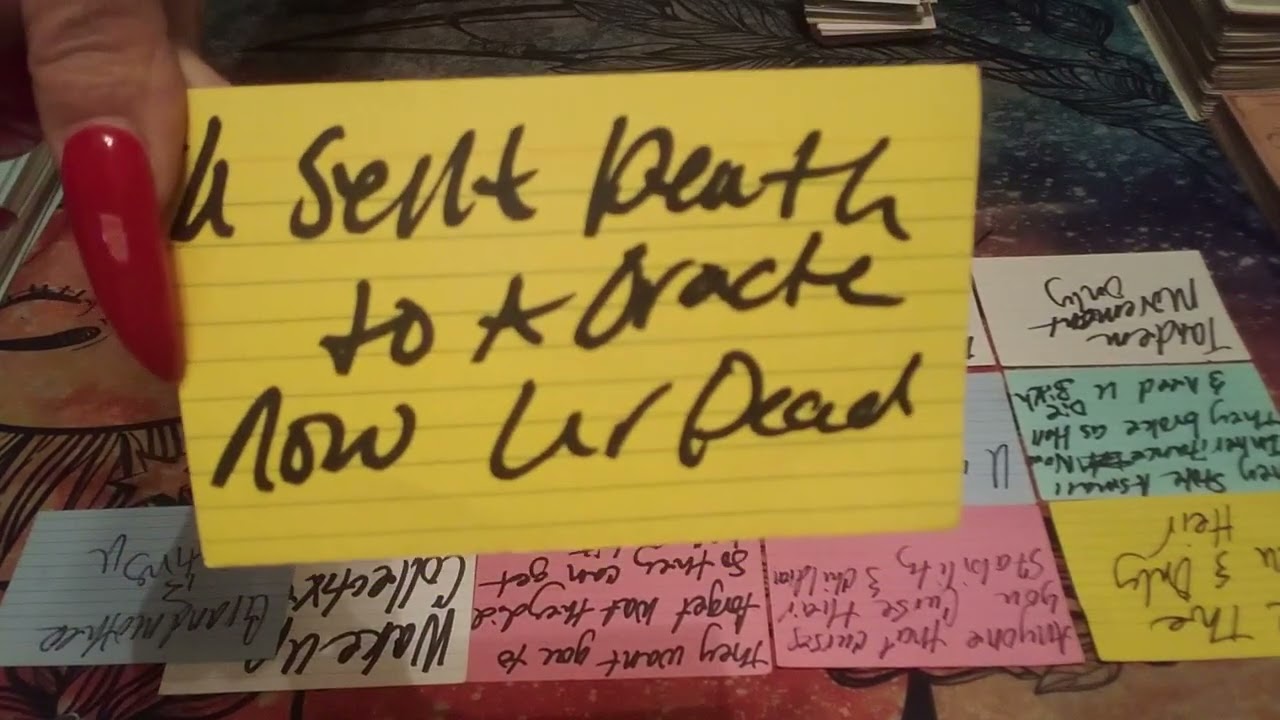 U Sent Death
to A Oracle
Now Ur Dead
Tandem
Movement
Only
Stole A small
Inheritance Now
they broke as Hell
& need u
Die
Bitch
U
The
& Only
Heir
Anyone that curses
you Curse their
Stability & Children
They want you to
forget what they did
So they can get
Wake Up
Collective
Grandmother
is